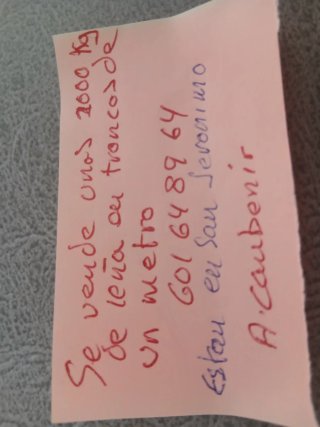 Se vende unos 2000 Kg
de leña en troncos de
un metro
601 64 89 64
Estan en San Jeronimo
A. convenir